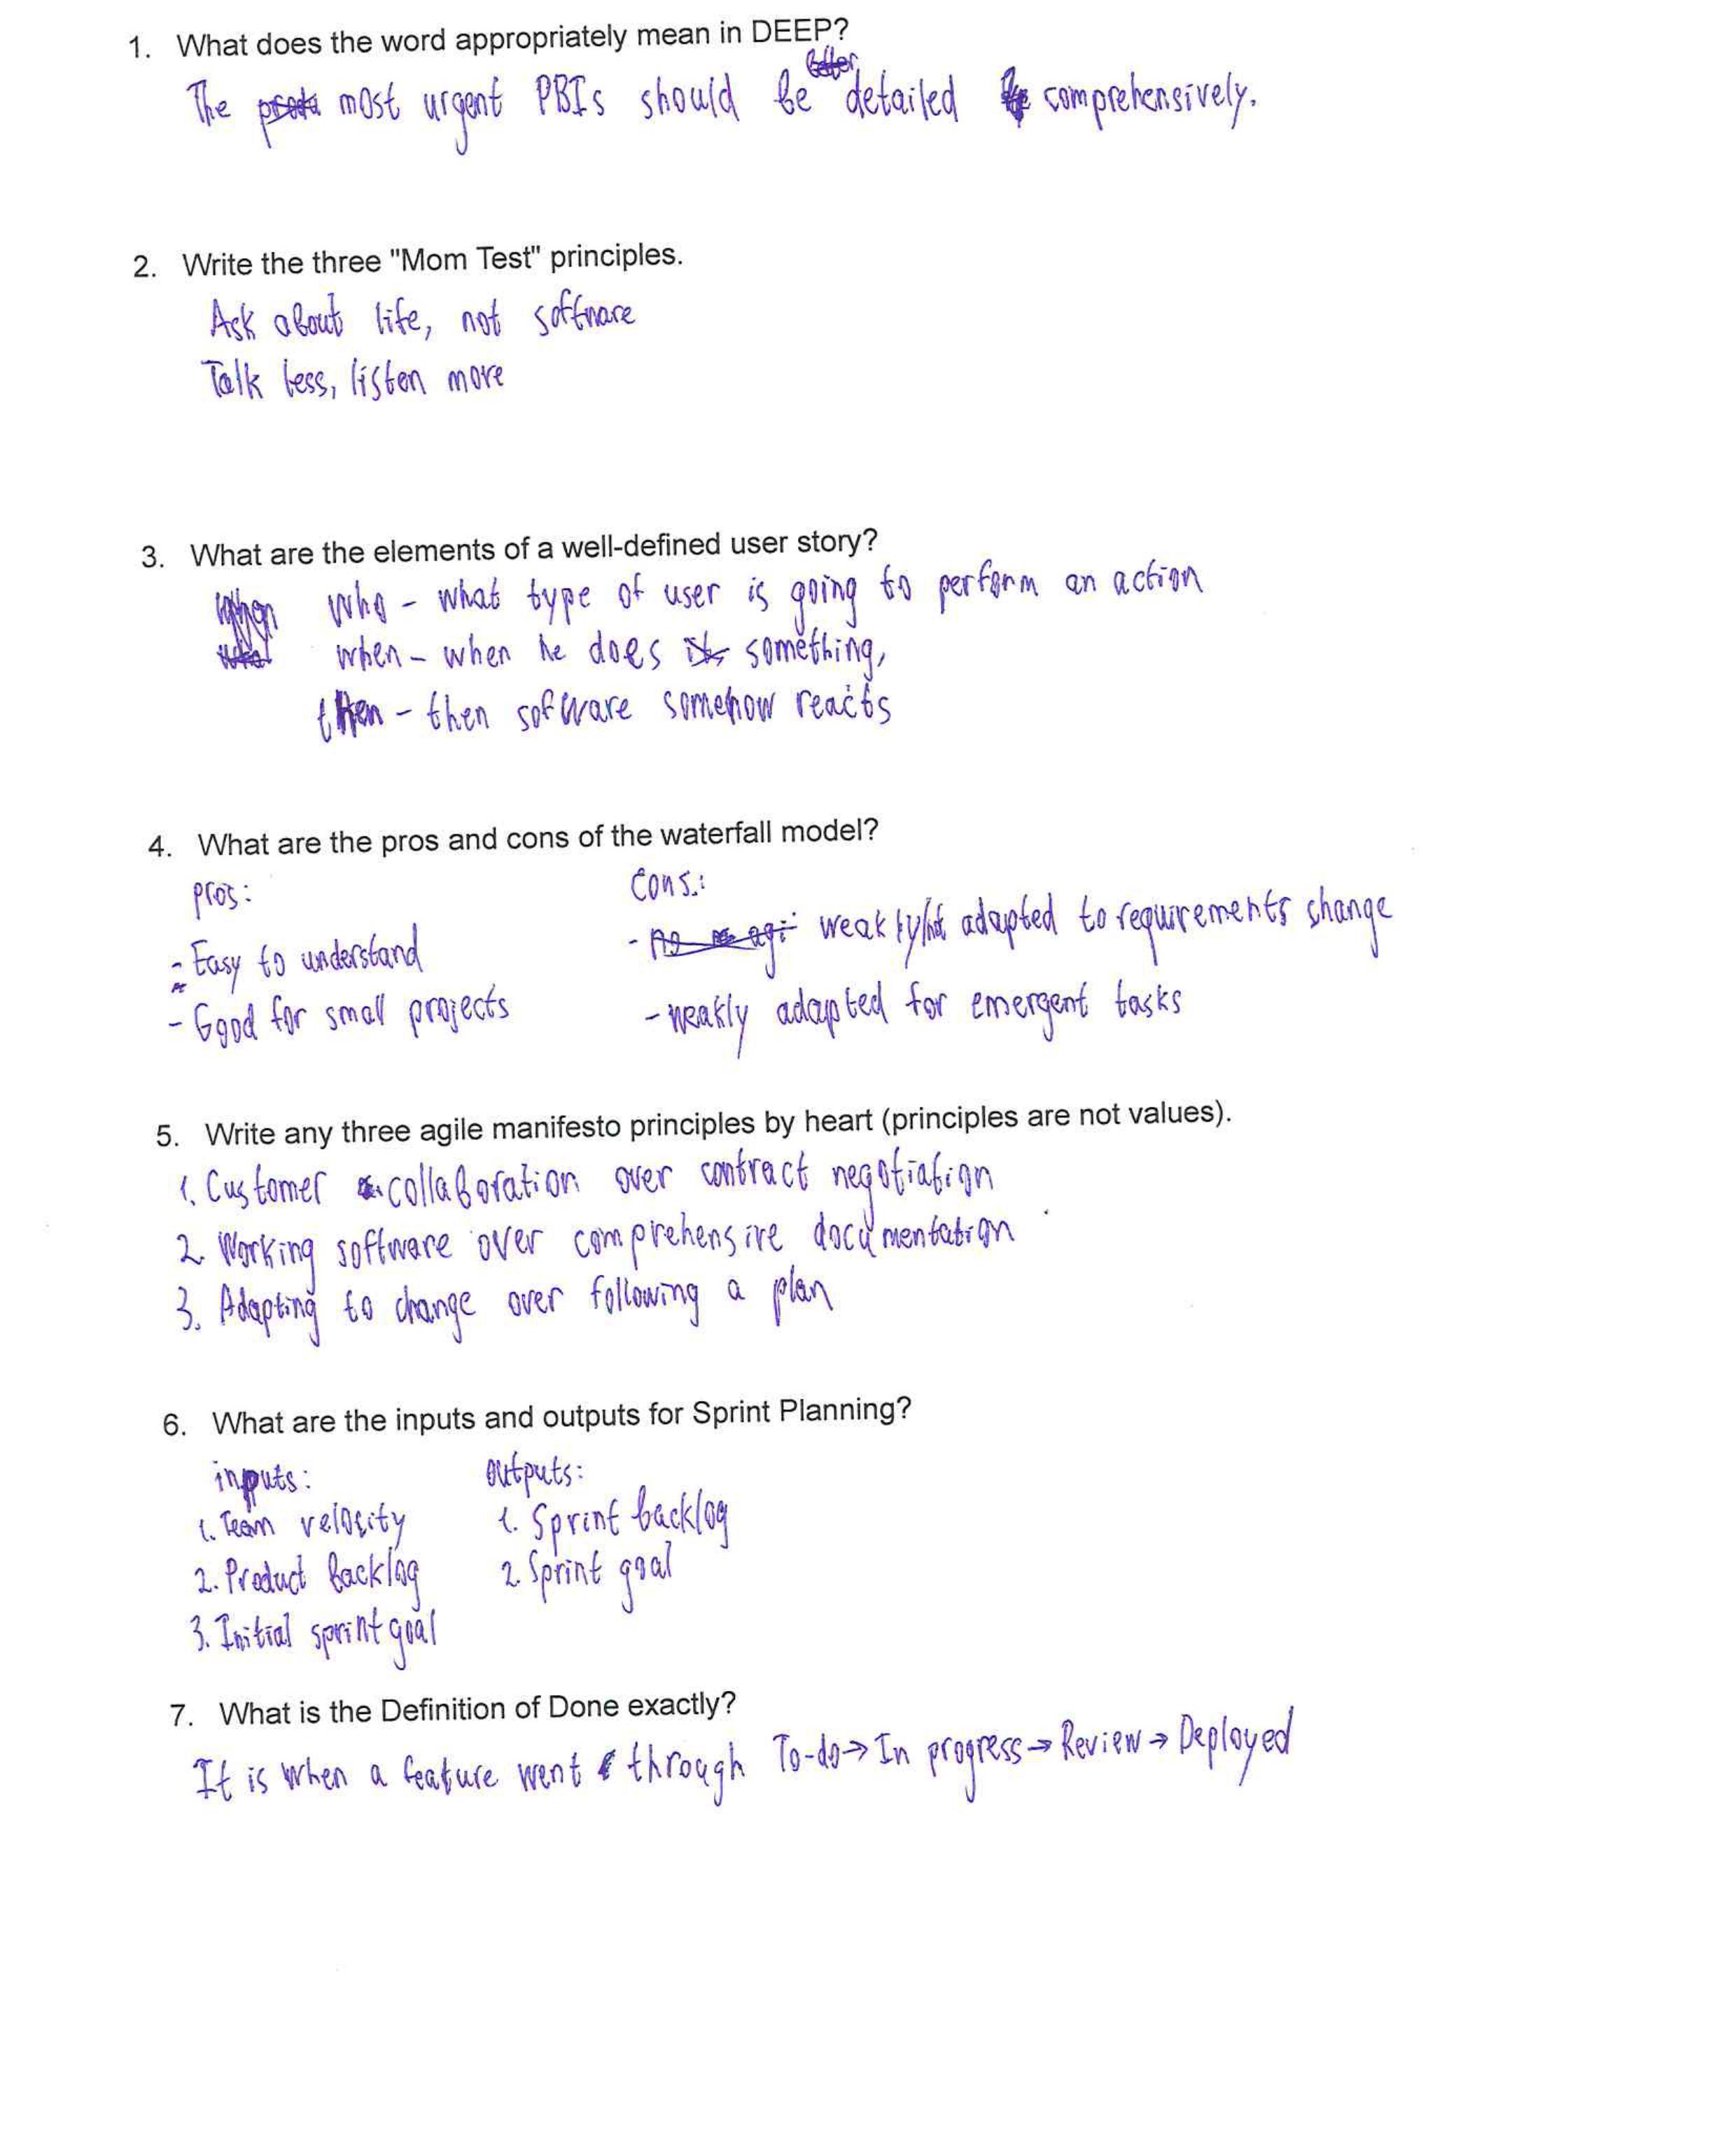 1. What does the word appropriately mean in DEEP?
better
The most urgent PBIs should be detailed comprehensively.
2. Write the three "Mom Test" principles.
Ask about life, not software
Talk less, listen more
3. What are the elements of a well-defined user story?
When Who - what type of user is going to perform an action
what when - when he does something,
then - then software somehow reacts
4. What are the pros and cons of the waterfall model?
pros: cons:
- Easy to understand - no agi weakly adapted to requirements change
- Good for small projects - weakly adapted for emergent tasks
5. Write any three agile manifesto principles by heart (principles are not values).
1. Customer collaboration over contract negotiation
2. Working software over comprehensive documentation
3. Adapting to change over following a plan
6. What are the inputs and outputs for Sprint Planning?
inputs: outputs:
1. Team velocity 1. Sprint backlog
2. Product backlog 2. Sprint goal
3. Initial sprint goal
7. What is the Definition of Done exactly?
It is when a feature went through To-do → In progress → Review → Deployed